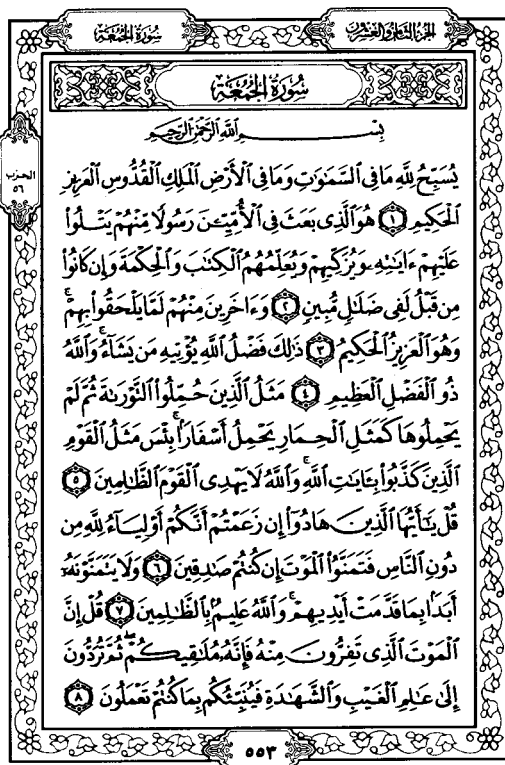 سُورَةُ الجُمُعَةِ
الجُزْءُ الثَّامِنُ وَالعِشْرُونَ
الحزب
٥٦
سُورَةُ الجُمُعَةِ
بِسْمِ ٱللَّهِ ٱلرَّحْمَٰنِ ٱلرَّحِيمِ
يُسَبِّحُ لِلَّهِ مَا فِى ٱلسَّمَٰوَٰتِ وَمَا فِى ٱلْأَرْضِ ٱلْمَلِكِ ٱلْقُدُّوسِ ٱلْعَزِيزِ
ٱلْحَكِيمِ ١ هُوَ ٱلَّذِى بَعَثَ فِى ٱلْأُمِّيِّـۧنَ رَسُولًا مِّنْهُمْ يَتْلُوا۟
عَلَيْهِمْ ءَايَٰتِهِۦ وَيُزَكِّيهِمْ وَيُعَلِّمُهُمُ ٱلْكِتَٰبَ وَٱلْحِكْمَةَ وَإِن كَانُوا۟
مِن قَبْلُ لَفِى ضَلَٰلٍ مُّبِينٍ ٢ وَءَاخَرِينَ مِنْهُمْ لَمَّا يَلْحَقُوا۟ بِهِمْ ۚ
وَهُوَ ٱلْعَزِيزُ ٱلْحَكِيمُ ٣ ذَٰلِكَ فَضْلُ ٱللَّهِ يُؤْتِيهِ مَن يَشَآءُ ۚ وَٱللَّهُ
ذُو ٱلْفَضْلِ ٱلْعَظِيمِ ٤ مَثَلُ ٱلَّذِينَ حُمِّلُوا۟ ٱلتَّوْرَىٰةَ ثُمَّ لَمْ
يَحْمِلُوهَا كَمَثَلِ ٱلْحِمَارِ يَحْمِلُ أَسْفَارًۢا ۚ بِئْسَ مَثَلُ ٱلْقَوْمِ
ٱلَّذِينَ كَذَّبُوا۟ بِـَٔايَٰتِ ٱللَّهِ ۚ وَٱللَّهُ لَا يَهْدِى ٱلْقَوْمَ ٱلظَّٰلِمِينَ ٥
قُلْ يَٰٓأَيُّهَا ٱلَّذِينَ هَادُوٓا۟ إِن زَعَمْتُمْ أَنَّكُمْ أَوْلِيَآءُ لِلَّهِ مِن
دُونِ ٱلنَّاسِ فَتَمَنَّوُا۟ ٱلْمَوْتَ إِن كُنتُمْ صَٰدِقِينَ ٦ وَلَا يَتَمَنَّوْنَهُۥٓ
أَبَدًۢا بِمَا قَدَّمَتْ أَيْدِيهِمْ ۚ وَٱللَّهُ عَلِيمٌۢ بِٱلظَّٰلِمِينَ ٧ قُلْ إِنَّ
ٱلْمَوْتَ ٱلَّذِى تَفِرُّونَ مِنْهُ فَإِنَّهُۥ مُلَٰقِيكُمْ ۖ ثُمَّ تُرَدُّونَ
إِلَىٰ عَٰلِمِ ٱلْغَيْبِ وَٱلشَّهَٰدَةِ فَيُنَبِّئُكُم بِمَا كُنتُمْ تَعْمَلُونَ ٨
٥٥٣